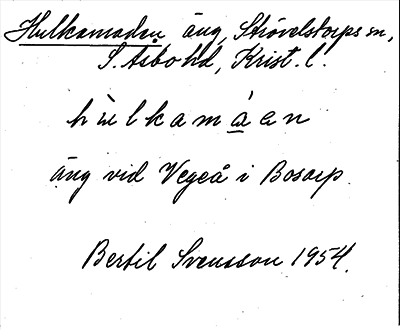 Hulkamaden äng, Strövelstorps sn,
S. Åsbo hd, Krist. l.
hùlkamaen
äng vid Vegeå i Bosarp.
Bertil Svensson 1954.